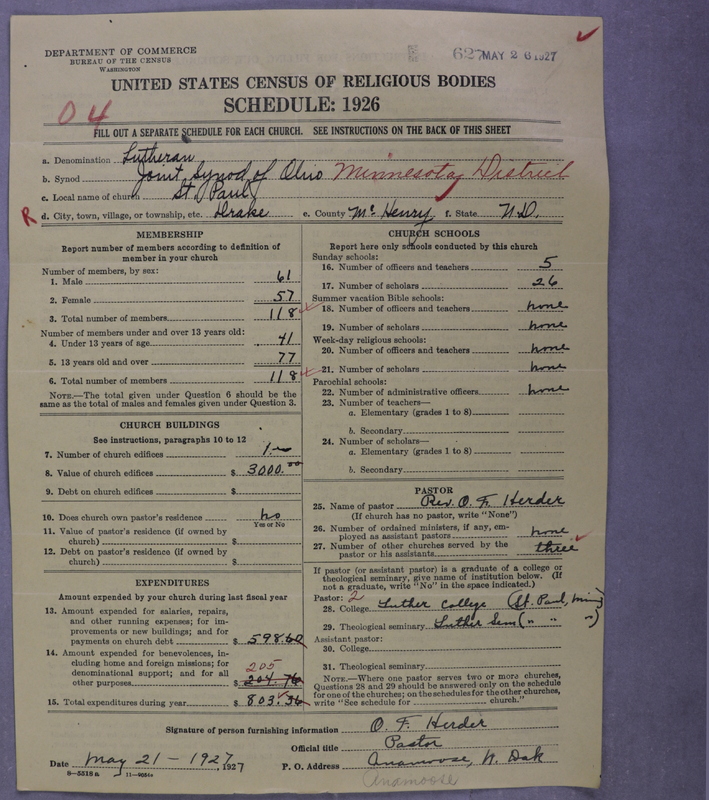 DEPARTMENT OF COMMERCE
BUREAU OF THE CENSUS
WASHINGTON
627 MAY 26 1927
UNITED STATES CENSUS OF RELIGIOUS BODIES
SCHEDULE: 1926
04
FILL OUT A SEPARATE SCHEDULE FOR EACH CHURCH. SEE INSTRUCTIONS ON THE BACK OF THIS SHEET
a. Denomination Lutheran
b. Synod Joint Synod of Ohio Minnesota District
c. Local name of church St. Paul
R d. City, town, village, or township, etc. Drake e. County McHenry f. State N.D.
MEMBERSHIP
Report number of members according to definition of
member in your church
Number of members, by sex:
1. Male 61
2. Female 57
3. Total number of members 118
Number of members under and over 13 years old:
4. Under 13 years of age 41
5. 13 years old and over 77
6. Total number of members 118
NOTE.—The total given under Question 6 should be the
same as the total of males and females given under Question 3.
CHURCH BUILDINGS
See instructions, paragraphs 10 to 12
7. Number of church edifices 1
8. Value of church edifices $ 3000.00
9. Debt on church edifices $
10. Does church own pastor's residence no
Yes or No
11. Value of pastor's residence (if owned by
church) $
12. Debt on pastor's residence (if owned by
church) $
EXPENDITURES
Amount expended by your church during last fiscal year
13. Amount expended for salaries, repairs,
and other running expenses; for im-
provements or new buildings; and for
payments on church debt $ 598.60
14. Amount expended for benevolences, in-
cluding home and foreign missions; for
denominational support; and for all
205
other purposes $ 204.76
15. Total expenditures during year $ 803.36
CHURCH SCHOOLS
Report here only schools conducted by this church
Sunday schools:
16. Number of officers and teachers 5
17. Number of scholars 26
Summer vacation Bible schools:
18. Number of officers and teachers none
19. Number of scholars none
Week-day religious schools:
20. Number of officers and teachers none
21. Number of scholars none
Parochial schools:
22. Number of administrative officers none
23. Number of teachers—
a. Elementary (grades 1 to 8)
b. Secondary
24. Number of scholars—
a. Elementary (grades 1 to 8)
b. Secondary
PASTOR
25. Name of pastor Rev. O. F. Herder
(If church has no pastor, write "None")
26. Number of ordained ministers, if any, em-
ployed as assistant pastors none
27. Number of other churches served by the
pastor or his assistants three
If pastor (or assistant pastor) is a graduate of a college or
theological seminary, give name of institution below. (If
not a graduate, write "No" in the space indicated.)
Pastor: 2
28. College Luther College (St. Paul, Minn)
29. Theological seminary Luther Sem (" " ")
Assistant pastor:
30. College
31. Theological seminary
NOTE.—Where one pastor serves two or more churches,
Questions 28 and 29 should be answered only on the schedule
for one of the churches; on the schedules for the other churches,
write "See schedule for church."
Signature of person furnishing information O. F. Herder
Official title Pastor
Date May 21 - 1927, 1927 P. O. Address Anamoose, N. Dak
8—5518a 11—9054a
Anamoose